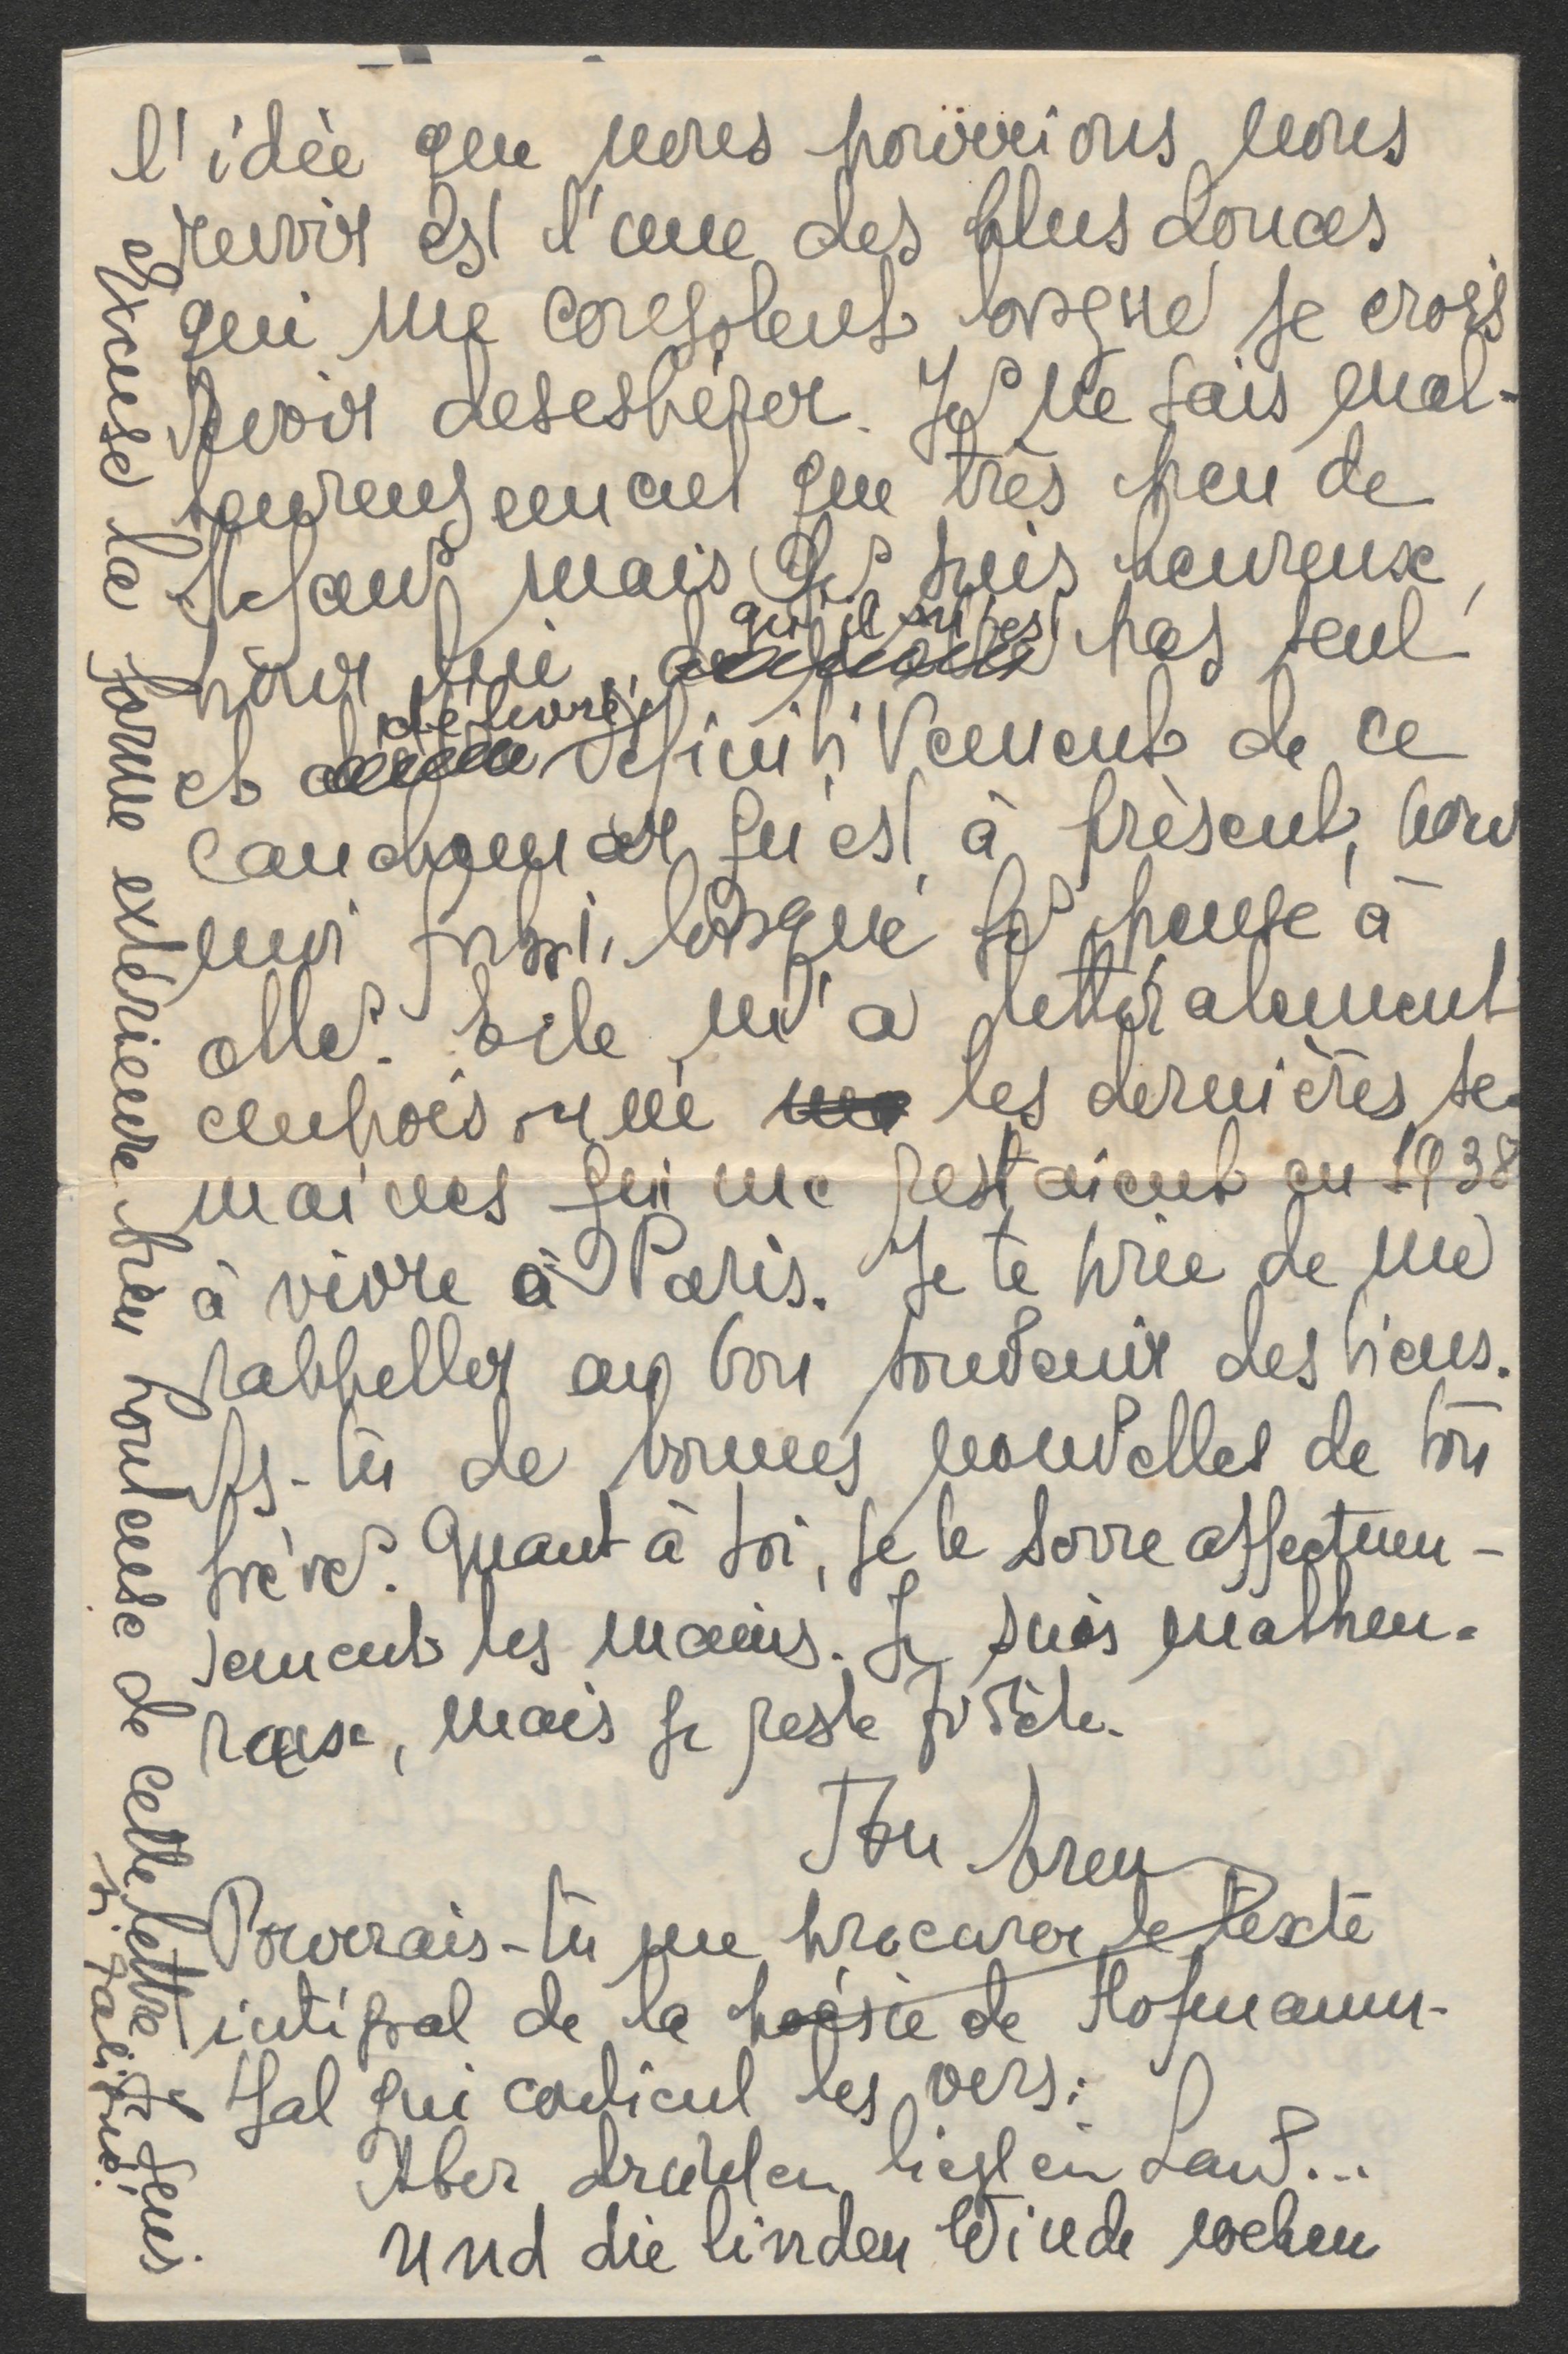 l'idée que nous pourrions nous
revoir est l'une des plus douces
qui me consolent lorsque je crois
devoir desespérer. Je ne sais mal-
heureusement que très peu de
Stefan, mais je suis heureux,
pour lui, qu'il n'est pas seul
et délivré définitivement de ce
cauchemar qu'est à présent, pour
moi aussi, lorsque je pense à
elle. Elle m'a littéralement
empoisonné les dernières se-
maines qui me restaient en 1938
à vivre à Paris. Je te prie de me
rappeller au bon souvenir des tiens.
As-tu de bonnes nouvelles de ton
frère? Quant à toi, je te serre affectueu-
sement les mains. Je suis malheu-
reux, mais je reste fidèle.
Ton
Pourrais-tu me procurer le texte
intégral de la poésie de Hofmann-
stal qui contient les vers:
Aber drüben liegt ein Land...
Und die linden Winde wehen
Excuse la forme extérieure bien honteuse de cette lettre. Je suis
si fatigué.